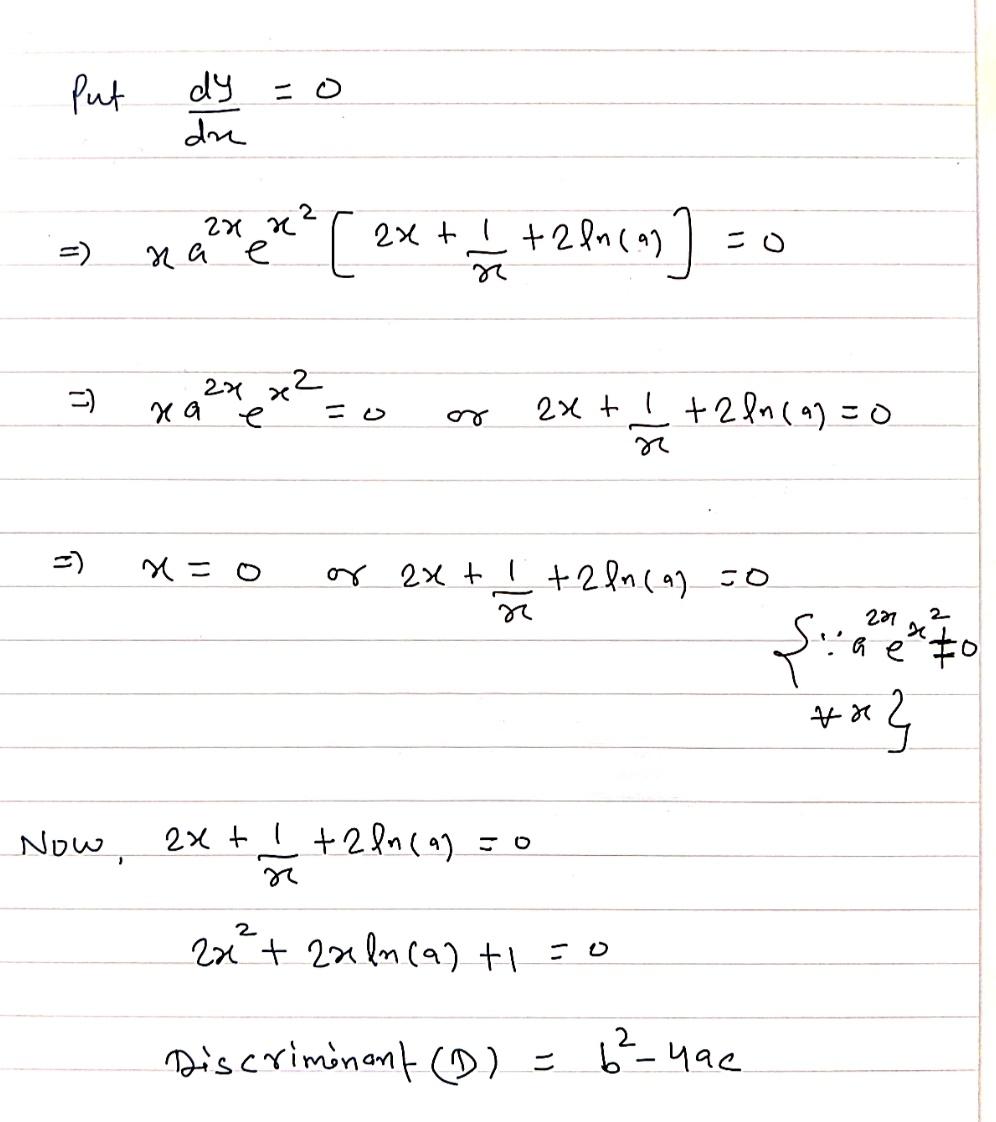 Put dy/dx = 0
=) x a^2x e^x^2 [ 2x + 1/x + 2 ln(a) ] = 0
=) x a^2x e^x^2 = 0 or 2x + 1/x + 2 ln(a) = 0
=) x = 0 or 2x + 1/x + 2 ln(a) = 0
{∵ a^2x e^x^2 ≠ 0
∀ x}
Now, 2x + 1/x + 2 ln(a) = 0
2x^2 + 2x ln(a) + 1 = 0
Discriminant (D) = b^2 - 4ac